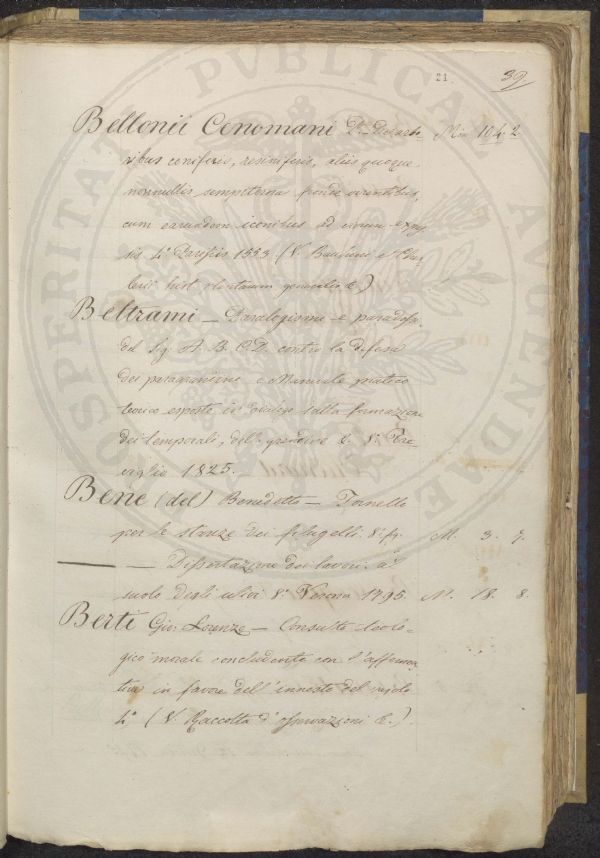 21
39
Bellonii Cenomani P.ri De arbo- Mis. 104. 2
ribus coniferis, resiniferis, aliis quoque
nonnullis sempiterna fronde virentibus,
cum earundem iconibus ad vivum expres-
sis 4.° Parisiis 1553. (V. Bauhini e
hist. plantarum generalis &)
Beltrami — Paralogismi e paradossi
del Sig. A. B. C. D. contro la difesa
dei paragrandini e Manuale pratico
teorico esposto in dialogo sulla formazione
dei temporali, della grandine & 8.° Tre-
viglio 1825.
Bene (del) Benedetto — Fornello
per le stanze dei filugelli. 8.° fig. M. 3. 7.
— — Dissertazione dei lavori al
suolo degli ulivi 8.° Verona 1795 M. 18. 8.
Berti Gio: Lorenzo — Consulto teolo-
gico-morale concludente con l'afferma-
tiva in favore dell'innesto del vajolo
4.° (V. Raccolta d'osservazioni &.).
PUBLICAE
PROSPERITATI
AUGENDAE